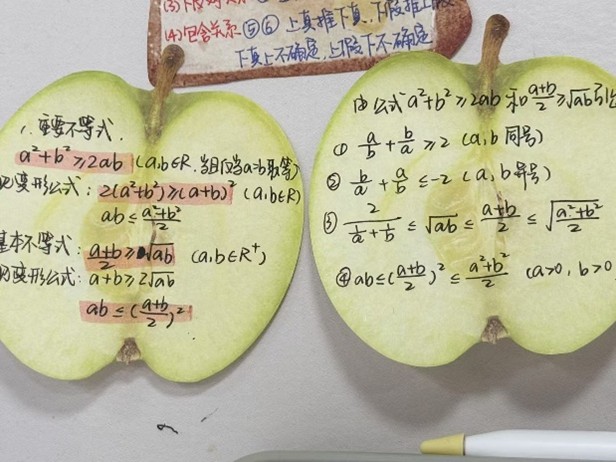 (4)包含关系 ⑤⑥ 上真推下真、下假推上假
下真上不确定,上假下不确定
1. 重要不等式.
a²+b²≥2ab (a,b∈R, 当且仅当a=b取等)
变形公式: 2(a²+b²)≥(a+b)² (a,b∈R)
ab≤(a²+b²)/2
基本不等式: (a+b)/2≥√ab (a,b∈R⁺)
变形公式: a+b≥2√ab
ab≤((a+b)/2)²
由公式a²+b²≥2ab 和 (a+b)/2≥√ab
① a/b+b/a≥2 (a,b同号)
② b/a+a/b≤-2 (a,b异号)
③ 2/(1/a+1/b)≤√ab≤(a+b)/2≤√((a²+b²)/2)
④ ab≤((a+b)/2)²≤(a²+b²)/2 (a>0, b>0